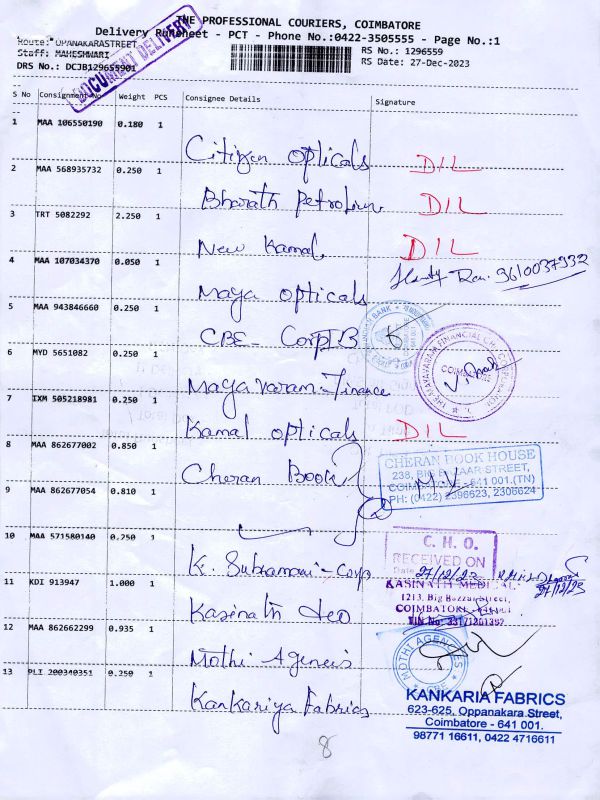 THE PROFESSIONAL COURIERS, COIMBATORE
Delivery Runsheet - PCT - Phone No.:0422-3505555 - Page No.:1
Route: OPANAKARASTREET
Staff: MAHESHWARI
DRS No.: DCJB129655901
RS No.: 1296559
RS Date: 27-Dec-2023
DOCUMENT DELIVERY
S No Consignment No Weight PCS Consignee Details Signature
1 MAA 106550190 0.180 1 Citizen opticals DIL
2 MAA 568935732 0.250 1 Bharath Petroleum DIL
3 TRT 5082292 2.250 1 New Kamal DIL
4 MAA 107034370 0.050 1 Maya opticals 9610037932
5 MAA 943846660 0.250 1 CBE - Corp IB
6 MYD 5651082 0.250 1 Mayavaram-Finance
COIMBATORE
7 IXM 505218981 0.250 1 Kamal opticals DIL
8 MAA 862677002 0.850 1 Cheran Book
CHERAN BOOK HOUSE
238, BIG BAZAAR STREET,
COIMBATORE - 641 001.(TN)
PH: (0422) 2396623, 2306624
9 MAA 862677054 0.810 1
10 MAA 571580140 0.250 1 K. Subramani - Corp
C. H. O.
RECEIVED ON
Date 27/12/23
27/12/23
11 KDI 913947 1.000 1 Kasinath Heo
KASINATH MEDICAL
1213, Big Bazzar Street,
COIMBATORE
12 MAA 862662299 0.935 1 Mothi Agencis
MOTHI AGENCIES
13 PLI 200340351 0.250 1 Kankariya Fabrics
KANKARIA FABRICS
623-625, Oppanakara Street,
Coimbatore - 641 001.
98771 16611, 0422 4716611
8